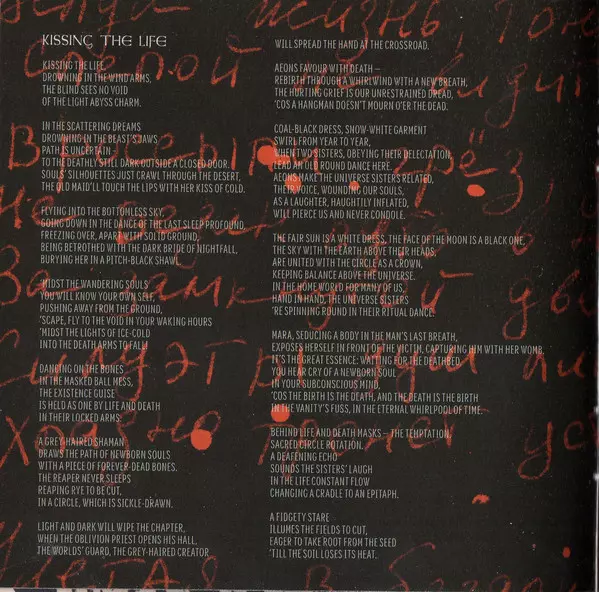 KISSING THE LIFE
KISSING THE LIFE,
DROWNING IN THE WIND ARMS,
THE BLIND SEES NO VOID
OF THE LIGHT ABYSS CHARM.
IN THE SCATTERING DREAMS
DROWNING IN THE BEAST'S JAWS
PATH IS UNCERTAIN –
TO THE DEATHLY STILL DARK OUTSIDE A CLOSED DOOR.
SOULS' SILHOUETTES JUST CRAWL THROUGH THE DESERT,
THE OLD MAID'LL TOUCH THE LIPS WITH HER KISS OF COLD.
FLYING INTO THE BOTTOMLESS SKY,
GOING DOWN IN THE DANCE OF THE LAST SLEEP PROFOUND,
FREEZING OVER, APART WITH SOLID GROUND,
BEING BETROTHED WITH THE DARK BRIDE OF NIGHTFALL,
BURYING HER IN A PITCH-BLACK SHAWL.
'MIDST THE WANDERING SOULS
YOU WILL KNOW YOUR OWN SELF,
PUSHING AWAY FROM THE GROUND,
'SCAPE, FLY TO THE VOID IN YOUR WAKING HOURS
'MIDST THE LIGHTS OF ICE-COLD
INTO THE DEATH ARMS TO FALL!
DANCING ON THE BONES
IN THE MASKED BALL MESS,
THE EXISTENCE GUISE
IS HELD AS ONE BY LIFE AND DEATH
IN THEIR LOCKED ARMS.
A GREY-HAIRED SHAMAN
DRAWS THE PATH OF NEWBORN SOULS
WITH A PIECE OF FOREVER-DEAD BONES.
THE REAPER NEVER SLEEPS
REAPING RYE TO BE CUT,
IN A CIRCLE, WHICH IS SICKLE-DRAWN.
LIGHT AND DARK WILL WIPE THE CHAPTER,
WHEN THE OBLIVION PRIEST OPENS HIS HALL.
THE WORLDS' GUARD, THE GREY-HAIRED CREATOR
WILL SPREAD THE HAND AT THE CROSSROAD.
AEONS FAVOUR WITH DEATH –
REBIRTH THROUGH A WHIRLWIND WITH A NEW BREATH,
THE HURTING GRIEF IS OUR UNRESTRAINED DREAD,
'COS A HANGMAN DOESN'T MOURN O'ER THE DEAD.
COAL-BLACK DRESS, SNOW-WHITE GARMENT
SWIRL FROM YEAR TO YEAR,
WHEN TWO SISTERS, OBEYING THEIR DELECTATION,
LEAD AN OLD ROUND DANCE HERE.
AEONS MAKE THE UNIVERSE SISTERS RELATED,
THEIR VOICE, WOUNDING OUR SOULS,
AS A LAUGHTER, HAUGHTILY INFLATED,
WILL PIERCE US AND NEVER CONDOLE.
THE FAIR SUN IS A WHITE DRESS, THE FACE OF THE MOON IS A BLACK ONE,
THE SKY WITH THE EARTH ABOVE THEIR HEADS,
ARE UNITED WITH THE CIRCLE AS A CROWN,
KEEPING BALANCE ABOVE THE UNIVERSE.
IN THE HOME WORLD FOR MANY OF US,
HAND IN HAND, THE UNIVERSE SISTERS
'RE SPINNING ROUND IN THEIR RITUAL DANCE.
MARA, SEDUCING A BODY IN THE MAN'S LAST BREATH,
EXPOSES HERSELF IN FRONT OF THE VICTIM, CAPTURING HIM WITH HER WOMB.
IT'S THE GREAT ESSENCE: WAITING FOR THE DEATHBED,
YOU HEAR CRY OF A NEWBORN SOUL
IN YOUR SUBCONSCIOUS MIND,
'COS THE BIRTH IS THE DEATH, AND THE DEATH IS THE BIRTH
IN THE VANITY'S FUSS, IN THE ETERNAL WHIRLPOOL OF TIME.
BEHIND LIFE AND DEATH MASKS – THE TEMPTATION,
SACRED CIRCLE ROTATION.
A DEAFENING ECHO
SOUNDS THE SISTERS' LAUGH
IN THE LIFE CONSTANT FLOW
CHANGING A CRADLE TO AN EPITAPH.
A FIDGETY STARE
ILLUMES THE FIELDS TO CUT,
EAGER TO TAKE ROOT FROM THE SEED
'TILL THE SOIL LOSES ITS HEAT.
жизнь,
Слепой не видит